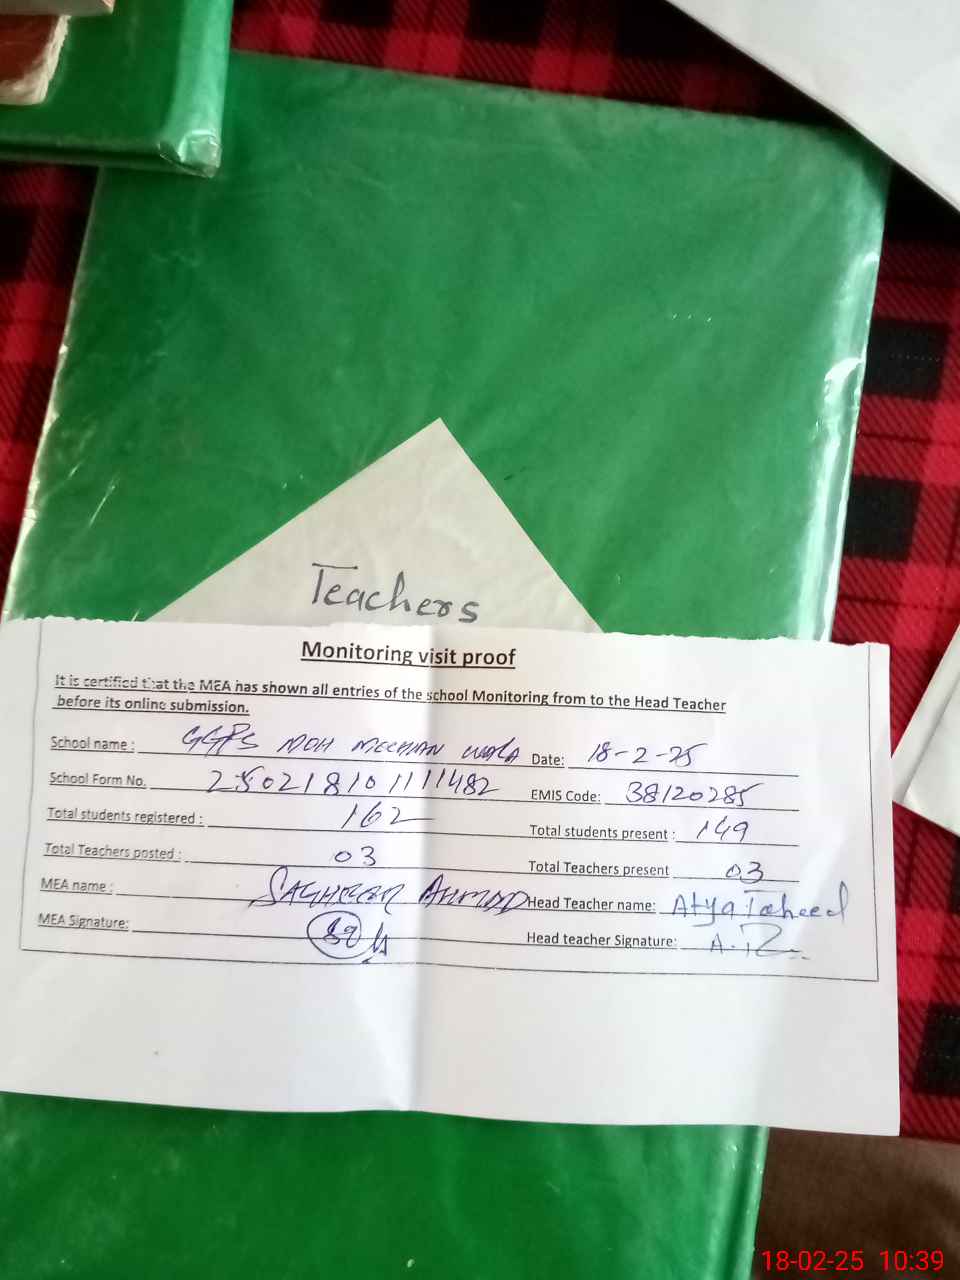 Teachers
Monitoring visit proof
It is certified that the MEA has shown all entries of the school Monitoring from to the Head Teacher
before its online submission.
School name : GGPS MOH MECHAN WALA Date: 18-2-25
School Form No. 250218101111482 EMIS Code: 38120285
Total students registered : 162 Total students present : 149
Total Teachers posted : 03 Total Teachers present 03
MEA name : SAGHEER AHMAD Head Teacher name: Atya Taheed
MEA Signature: Head teacher Signature: A.T
18-02-25 10:39